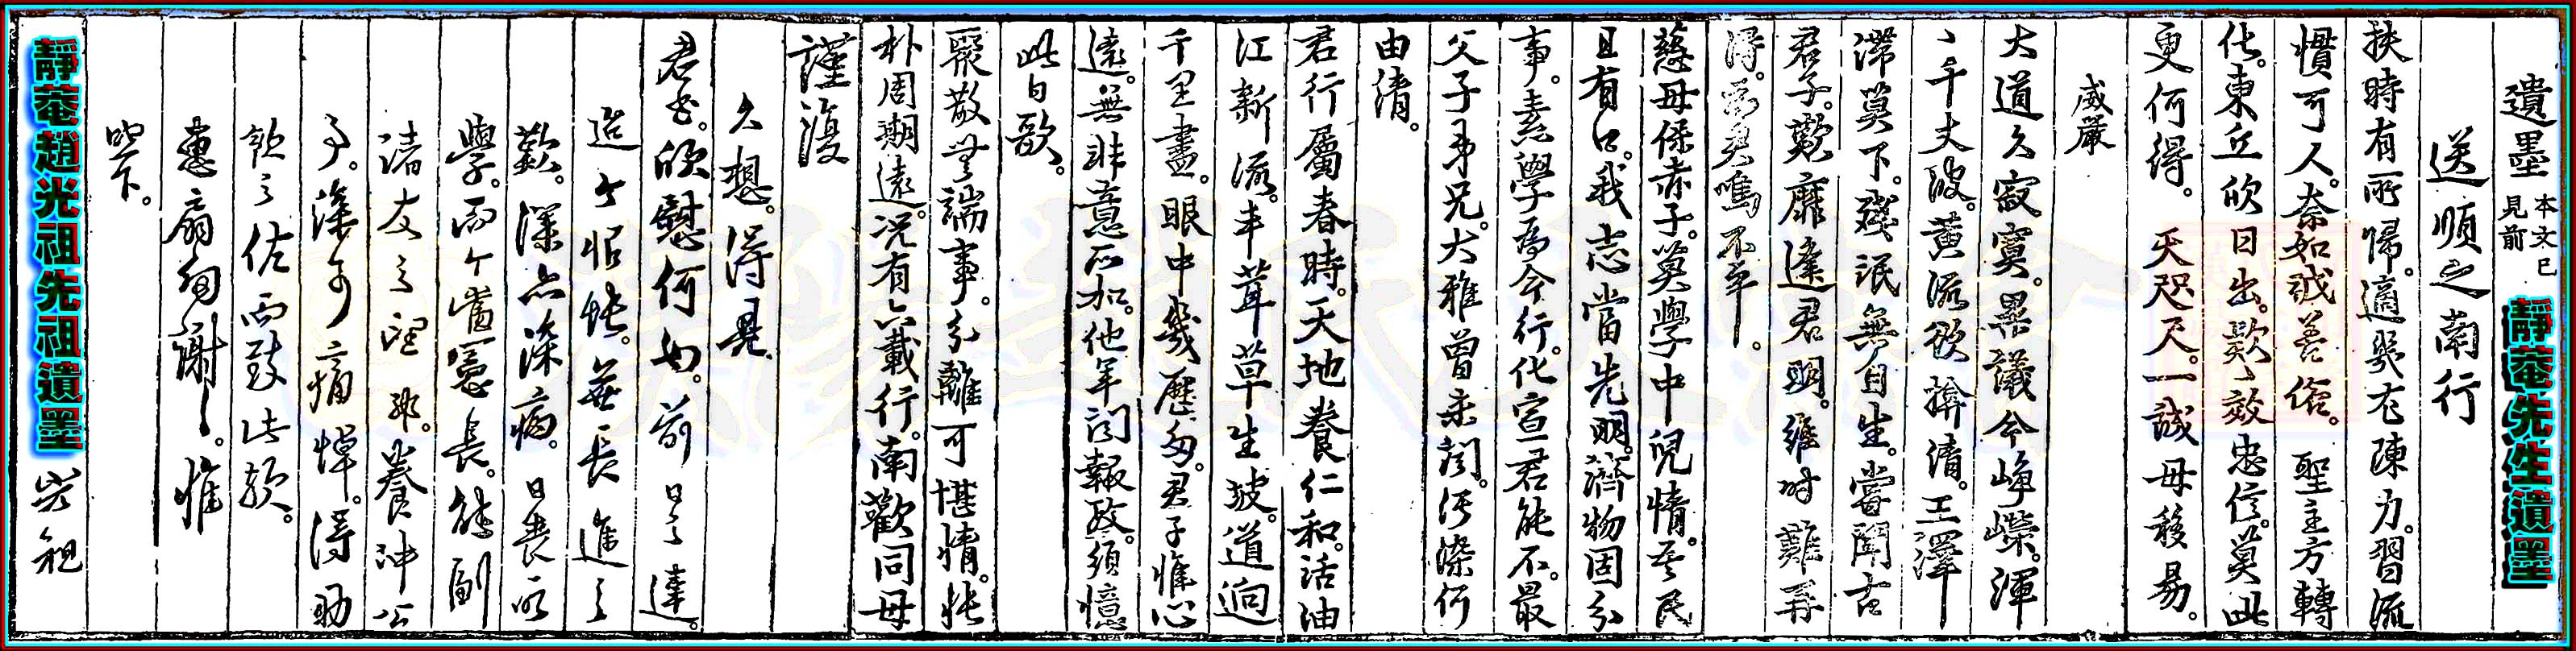 遺墨 本文已見前
靜菴先生遺墨
送順之南行
扶時有所歸。適
陳力。習流
慣可人。奈如誠善俗。聖主方轉
化。東丘欣日出。歎歎效忠信。莫此
更何得。天咫尺。一誠毋移易。
威嚴
大道久寂寞。異議今崢嶸。渾
渾千丈波。黃流欲擠淸。王澤
滯莫下。殘氓無自生。嘗聞古
君子。歎靡達君明。維時難再
得。
鳴不平。
慈母保赤子。莫學中兒情。吾民
且有口。我志當先明。濟物固分
事。素學爲今行。化宣君能不。最
父子弟兄。大雅曾未聞。汚染何
由淸。
君行屬春時。天地養仁和。活油
江新流。丰茸草生坡。道逈
千里盡。眼中幾歷多。君子惟心
遠。無非意所加。他年聞報政。須憶
此日歌。
聚散無端事。分離可堪情。悵
朴周期遠。況有六載行。南歡同母
謹復
久想。得見
君書。欣慰何如。前日了達。
造今恨恨。無長進之
歎。深亦深病。日喪所
學。而今
長。能副
諸友之望耶。養沖公
事。深可痛悼。得助
歎之佐而致此款。
惠扇多謝謝。惟
照下。
光祖
靜菴趙光祖先祖遺墨